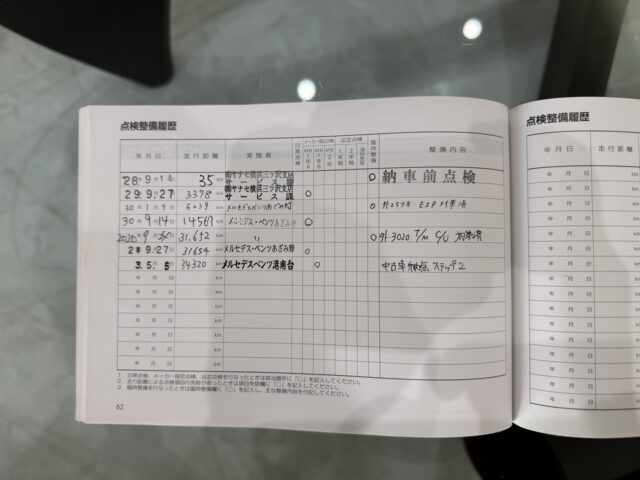 点検整備履歴
年月日 走行距離 実施者 日常点検 メーカー指定点検 法定点検 臨時整備 整備内容
MB 1年A MB 1年B MB 2年 1年毎 2年毎
28.9.14 35km ㈱ヤナセ横浜三ツ沢支店 サービス課 ○ 納車前点検
29.9.27 3378km ㈱ヤナセ横浜三ツ沢支店 サービス課 ○
30年1月9日 6039km メルセデスベンツあざみ野 ○
30年9月14日 14567km メルセデス・ベンツあざみ野 ○
2020年9月 31,642km 〃 ○ 外3020 T/M C/U 対策済
2年9/27日 31654km メルセデス・ベンツあざみ野 ○
3.5.5 34320km メルセデスベンツ港南台 ○ 中古車納点 ステップ2
年 月 日 km
年 月 日 km
年 月 日 km
年 月 日 km
年 月 日 km
年 月 日 km
年 月 日 km
1. 日常点検、メーカー指定点検、法定点検を行なったときは該当箇所に「○」を記入してください。
2. 走行距離による点検項目の免除があったときは項目免除欄に「○」を記入してください。
3. 臨時整備を行なったときは臨時整備欄に「○」を記入し、主な整備内容を付記してください。
62
点検整備履歴
年月日 走行距離
年 月 日 km
年 月 日 km
年 月 日 km
年 月 日 km
年 月 日 km
年 月 日 km
年 月 日 km
年 月 日 km
年 月 日 km
年 月 日 km
年 月 日 km
年 月 日 km
年 月 日 km
年 月 日 km